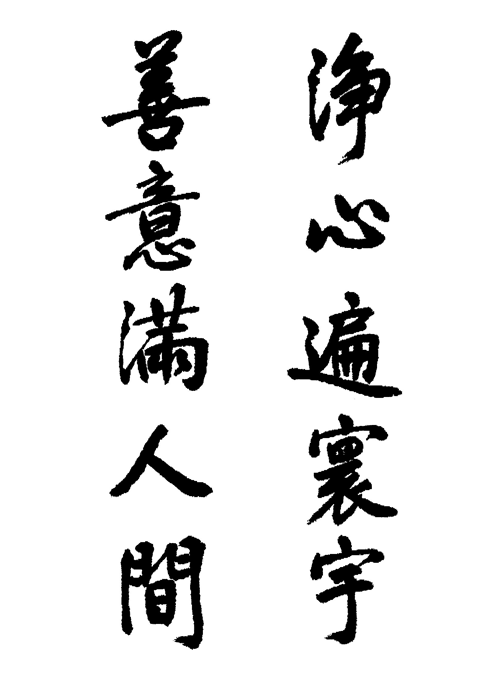 淨心遍寰宇
善意滿人間